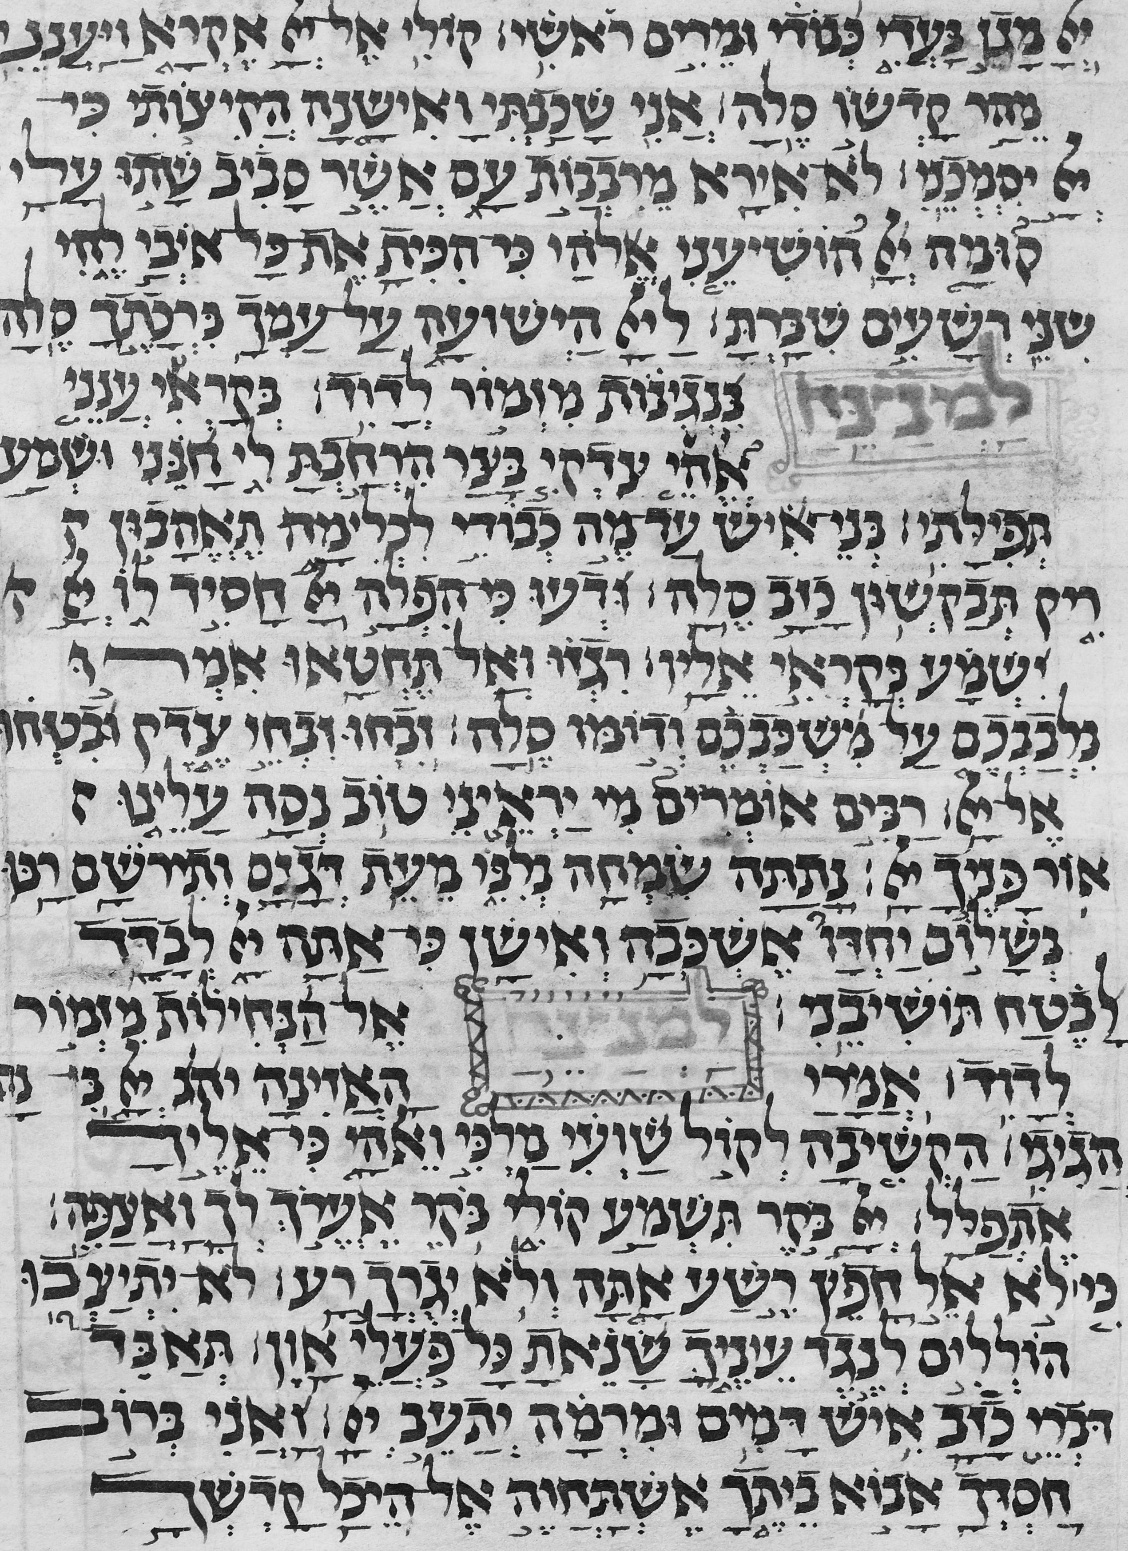 יא מגן בעדי כבודי ומרים ראשי׃ קולי אל יא אקרא ויענני
מהר קדשו סלה׃ אני שכבתי ואישנה הקיצותי כי
יא יסמכני׃ לא אירא מרבבות עם אשר סביב שתו עלי
קומה יא הושיעני אלהי כי הכית את כל אויבי לחי
שני רשעים שברת׃ ליא הישועה על עמך ברכתך סלה
למנצח בנגינות מזמור לדוד׃ בקראי ענני
אלהי צדקי בצר הרחבת לי חנני ושמע
תפילתי׃ בני איש עד מה כבודי לכלימה תאהבון
ריק תבקשון כזב סלה׃ ודעו כי הפלה יא חסיד לו יא
ישמע בקראי אליו׃ רגזו ואל תחטאו אמרו
בלבבכם על מישכבכם ודומו סלה׃ זבחו זבחי צדק ובטחו
אל יא׃ רבים אומרים מי יראיני טוב נסה עלינו
אור פניך יא׃ נתתה שמחה בלבי מעת דגנם ותירשם רבו
בשלום יחדו אשכבה ואישן כי אתה יא לבדד
לבטח תושיבני׃ למנצח אל הנחילות מזמור
לדוד׃ אמרי האזינה יא בינה
הגיגי׃ הקשיבה לקול שועי מלכי ואלהי כי אליך
אתפלל׃ יא בקר תשמע קולי בקר אערוך לך ואצפה׃
כי לא אל חפץ רשע אתה ולא יגרך רע׃ לא יתיצבו
הוללים לנגד עיניך שנאת כל פעלי און׃ תאבד
דברי כזב איש דמים ומרמה יתעב יא׃ ואני ברוב
חסדך אבוא ביתך אשתחוה אל היכל קדשך